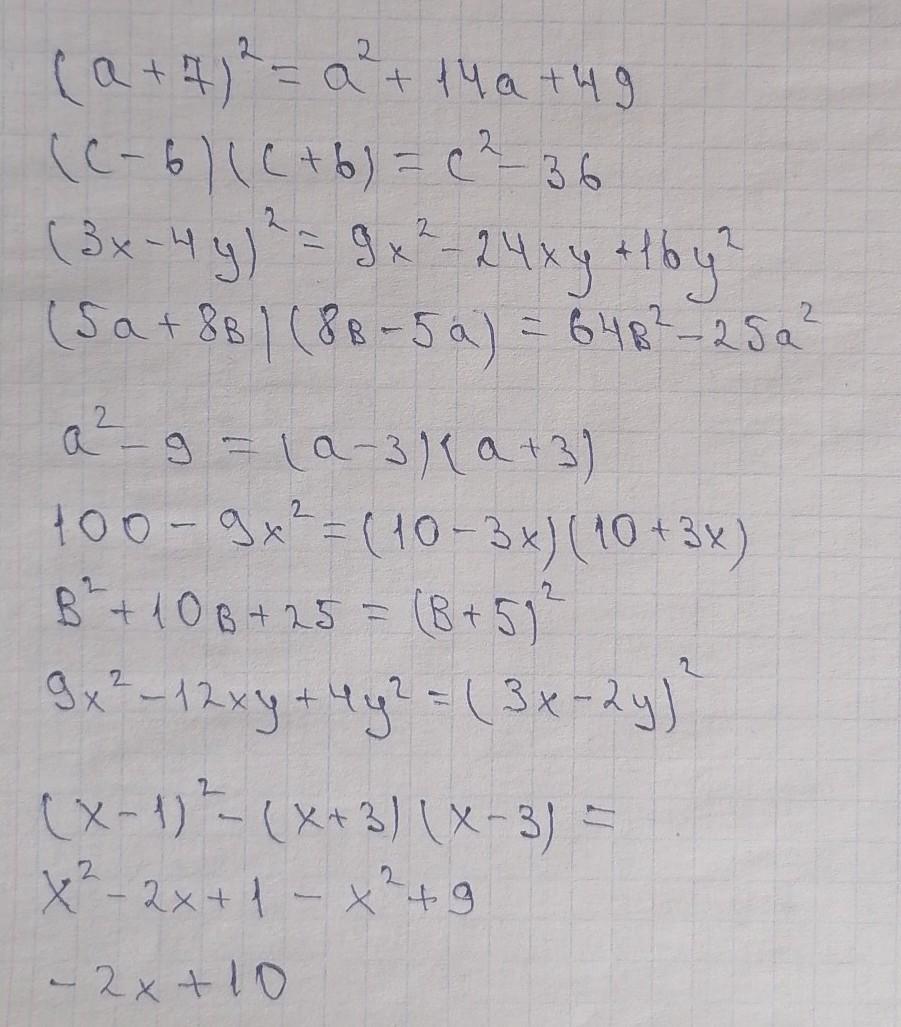 (a + 7)² = a² + 14a + 49
(c - 6)(c + 6) = c² - 36
(3x - 4y)² = 9x² - 24xy + 16y²
(5a + 8в)(8в - 5a) = 64в² - 25a²
a² - 9 = (a - 3)(a + 3)
100 - 9x² = (10 - 3x)(10 + 3x)
в² + 10в + 25 = (в + 5)²
9x² - 12xy + 4y² = (3x - 2y)²
(x - 1)² - (x + 3)(x - 3) =
x² - 2x + 1 - x² + 9
- 2x + 10